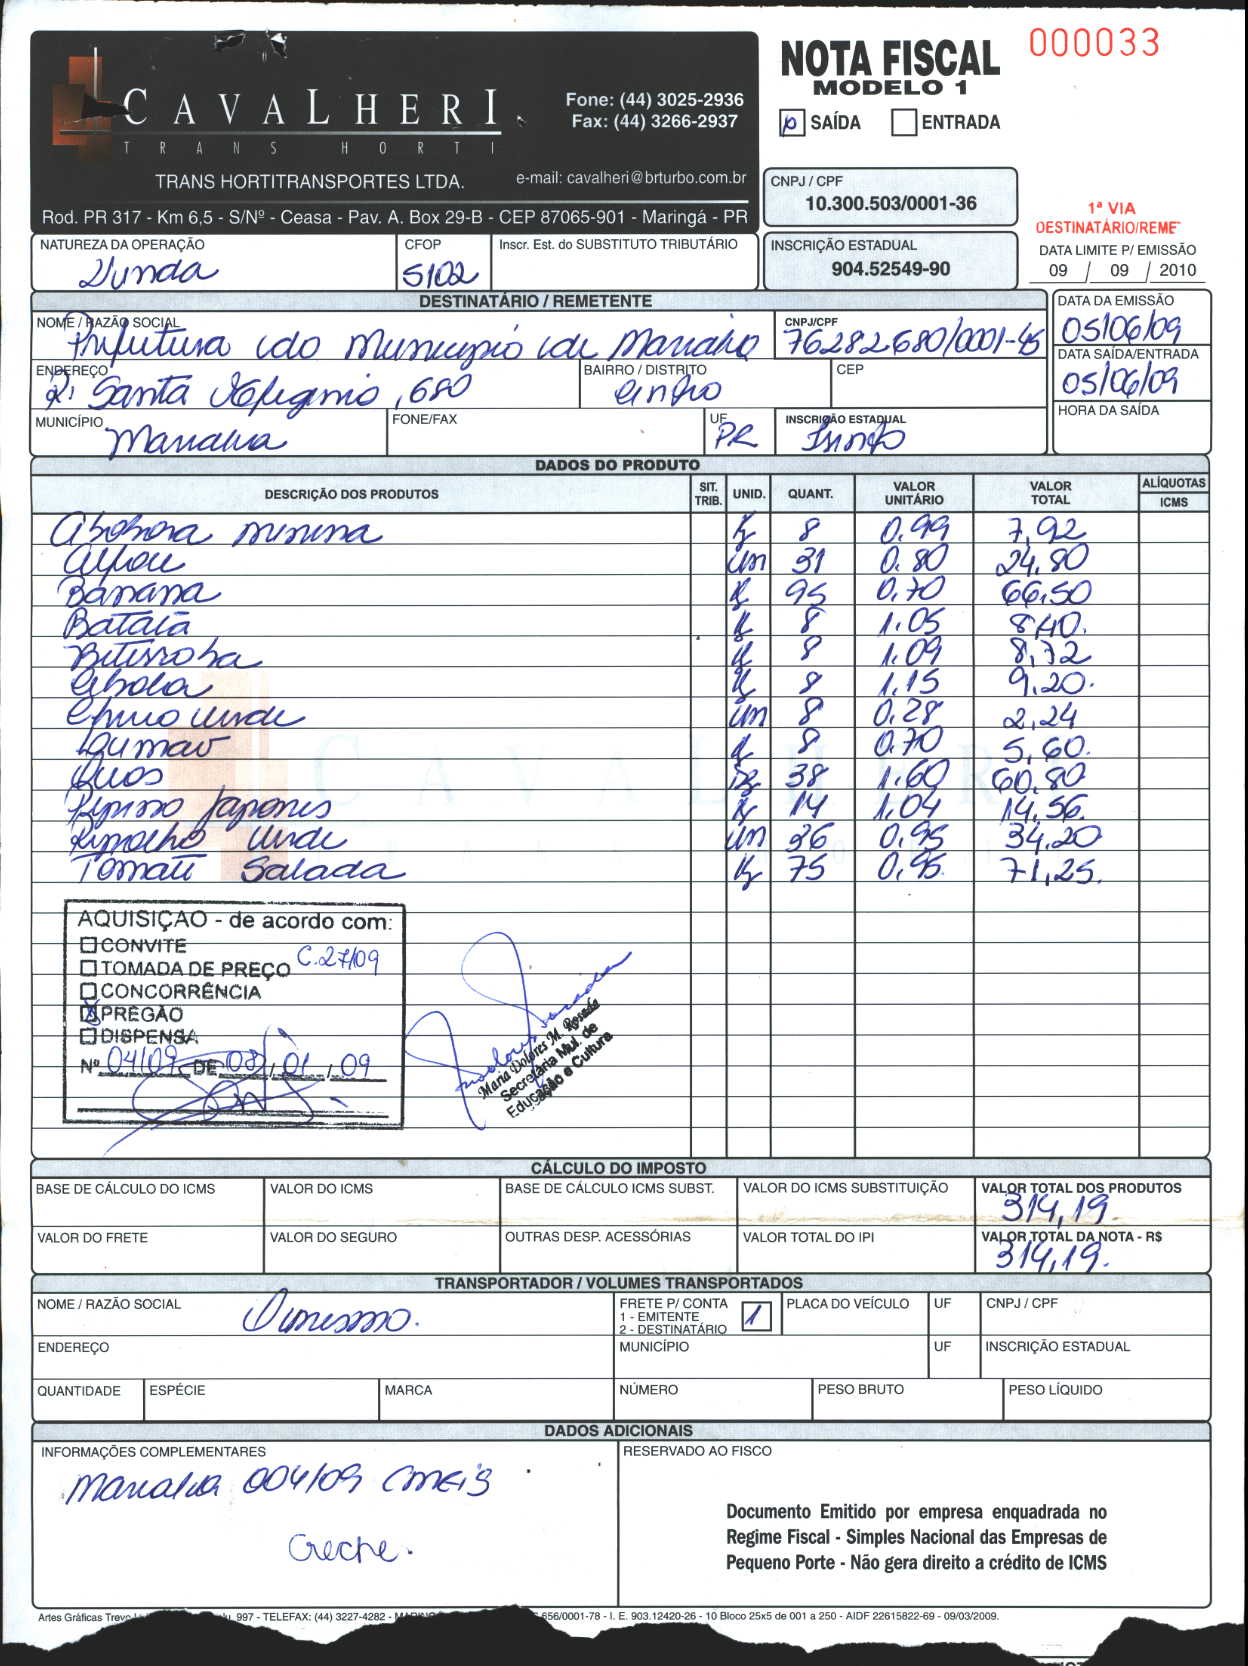 CAVALHERI
TRANS HORTI
TRANS HORTITRANSPORTES LTDA.
Fone: (44) 3025-2936
Fax: (44) 3266-2937
e-mail: cavalheri@brturbo.com.br
Rod. PR 317 - Km 6,5 - S/Nº - Ceasa - Pav. A. Box 29-B - CEP 87065-901 - Maringá - PR
NOTA FISCAL
MODELO 1
000033
SAÍDA ENTRADA
CNPJ / CPF
10.300.503/0001-36
1ª VIA
DESTINATÁRIO/REME
DATA LIMITE P/ EMISSÃO
09 / 09 / 2010
NATUREZA DA OPERAÇÃO
Venda
CFOP
5102
Inscr. Est. do SUBSTITUTO TRIBUTÁRIO
INSCRIÇÃO ESTADUAL
904.52549-90
DESTINATÁRIO / REMETENTE
NOME / RAZÃO SOCIAL
Prefeitura do Municipio de Marialva
CNPJ/CPF
76282680/0001-45
DATA DA EMISSÃO
05/06/09
ENDEREÇO
R: Santa Efigenia, 680
BAIRRO / DISTRITO
Centro
CEP
DATA SAÍDA/ENTRADA
05/06/09
MUNICÍPIO
Marialva
FONE/FAX
UF
PR
INSCRIÇÃO ESTADUAL
Isento
HORA DA SAÍDA
DADOS DO PRODUTO
DESCRIÇÃO DOS PRODUTOS SIT. TRIB. UNID. QUANT. VALOR UNITÁRIO VALOR TOTAL ALÍQUOTAS ICMS
Abobora menina Kg 8 0,99 7,92
Alface un 31 0,80 24,80
Banana K 95 0,70 66,50
Batata K 8 1,05 8,40
Beterraba K 8 1,09 8,72
Cebola K 8 1,15 9,20
Cheiro verde un 8 0,28 2,24
K 8 0,70 5,60
Ovos Dz 38 1,60 60,80
Pepino Japones K 14 1,04 14,56
Repolho Verde un 36 0,95 34,20
Tomate Salada Kg 75 0,95 71,25
AQUISIÇAO - de acordo com:
CONVITE
TOMADA DE PREÇO C.27/09
CONCORRÊNCIA
PREGÃO
DISPENSA
Nº 04/09 DE 08/01/09
Maria Dolores M. Rosada
Secretária Mul. de
Educação e Cultura
CÁLCULO DO IMPOSTO
BASE DE CÁLCULO DO ICMS
VALOR DO ICMS
BASE DE CÁLCULO ICMS SUBST.
VALOR DO ICMS SUBSTITUIÇÃO
VALOR TOTAL DOS PRODUTOS
314,19
VALOR DO FRETE
VALOR DO SEGURO
OUTRAS DESP. ACESSÓRIAS
VALOR TOTAL DO IPI
VALOR TOTAL DA NOTA - R$
314,19
TRANSPORTADOR / VOLUMES TRANSPORTADOS
NOME / RAZÃO SOCIAL
O mesmo.
FRETE P/ CONTA
1 - EMITENTE
2 - DESTINATÁRIO
1
PLACA DO VEÍCULO
UF
CNPJ / CPF
ENDEREÇO
MUNICÍPIO
UF
INSCRIÇÃO ESTADUAL
QUANTIDADE
ESPÉCIE
MARCA
NÚMERO
PESO BRUTO
PESO LÍQUIDO
DADOS ADICIONAIS
INFORMAÇÕES COMPLEMENTARES
Marialva 004/09 CMEIS
Creche.
RESERVADO AO FISCO
Documento Emitido por empresa enquadrada no
Regime Fiscal - Simples Nacional das Empresas de
Pequeno Porte - Não gera direito a crédito de ICMS
Artes Gráficas Trevo 997 - TELEFAX: (44) 3227-4282 - 656/0001-78 - I. E. 903.12420-26 - 10 Bloco 25x5 de 001 a 250 - AIDF 22615822-69 - 09/03/2009.